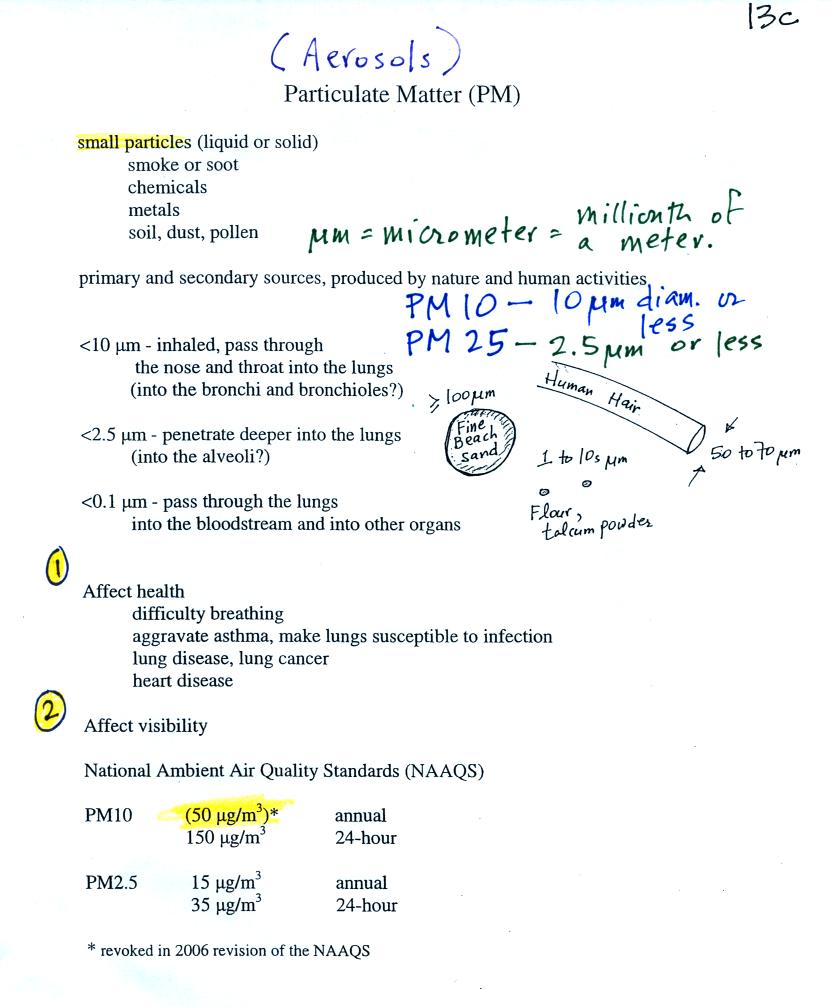 13c
(Aerosols)
Particulate Matter (PM)
small particles (liquid or solid)
smoke or soot
chemicals
metals
soil, dust, pollen
μm = micrometer = millionth of
a meter.
primary and secondary sources, produced by nature and human activities
PM 10 — 10 μm diam. or
less
PM 25 — 2.5 μm or less
<10 μm - inhaled, pass through
the nose and throat into the lungs
(into the bronchi and bronchioles?)
<2.5 μm - penetrate deeper into the lungs
(into the alveoli?)
<0.1 μm - pass through the lungs
into the bloodstream and into other organs
≥ 100 μm
Fine
Beach
Sand
Human Hair
50 to 70 μm
1 to 10s μm
Flour,
talcum powder
1
Affect health
difficulty breathing
aggravate asthma, make lungs susceptible to infection
lung disease, lung cancer
heart disease
2
Affect visibility
National Ambient Air Quality Standards (NAAQS)
PM10 (50 μg/m³)* annual
150 μg/m³ 24-hour
PM2.5 15 μg/m³ annual
35 μg/m³ 24-hour
* revoked in 2006 revision of the NAAQS